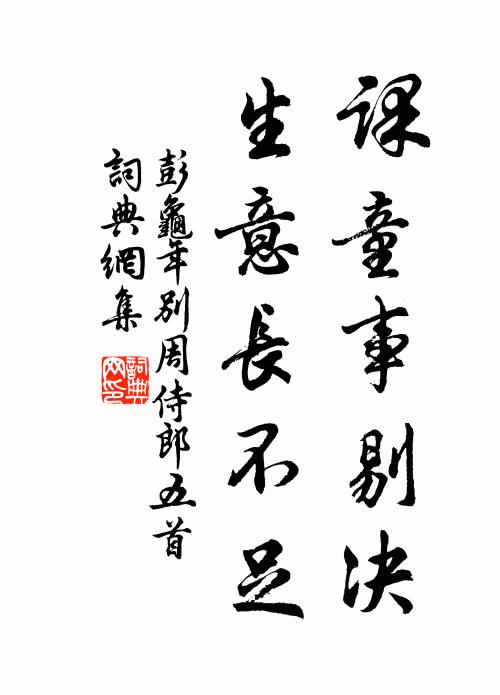 課童事剔決
生意長不足
彭龜年別周侍郎五首
詞典網集
詞典網印